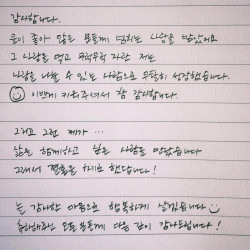 감사합니다.
운이 좋아 많은 분들께 넘치는 사랑을 받았어요
그 사랑을 먹고 무럭무럭 자란 저는
사랑을 나눌 수 있는 사람으로 무탈히 성장했습니다.
이쁘게 키워주셔서 참 감사합니다.
그리고 그런 제가 ...
삶을 함께하고 싶은 사람을 만났습니다
그래서 결혼을 하기로 했답니다!
늘 감사한 마음으로 행복하게 살겠습니다
축하해주신 모든 분들께 다음 감사드립니다!